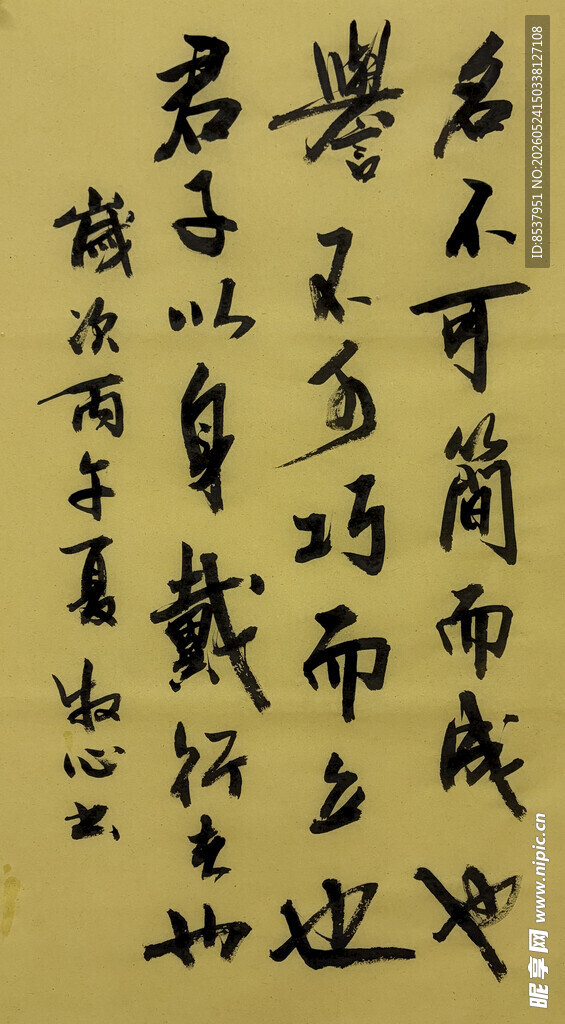 名不可簡而成也
譽不可巧而立也
君子以身戴行者也
歲次丙午夏 牧心書
ID:8537951 NO:20260524150338127108
昵享网 www.nipic.cn